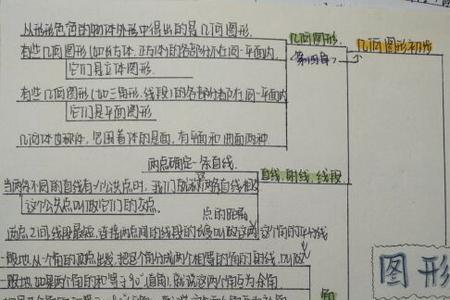 从形形色色的物体外形中得出的是几何图形.
有些几何图形(如长方体,正方体)的各部分不在同一平面内,
它们是立体图形.
有些几何图形(如三角形,线段)的各部分都在同一平面内
它们是平面图形
几何体也称体,包围着体的是面,有平面和曲面两种
几何图形
(第四章)
几何图形初步
两点确定一条直线.
直线、射线、线段
当两条不同的直线有一个公共点时,我们就称两条直线相交
这个公共点叫做它们的交点.
点的距离
两点之间线段最短,连接两点间的线段的长度叫做这两
一般地,从一个角的顶点出发,把这个角分成两个相等的角的射线,叫做
这个角的平分线
一般地,如果两个角的和等于90°(直角),就说这两个角互为余角
角
图形